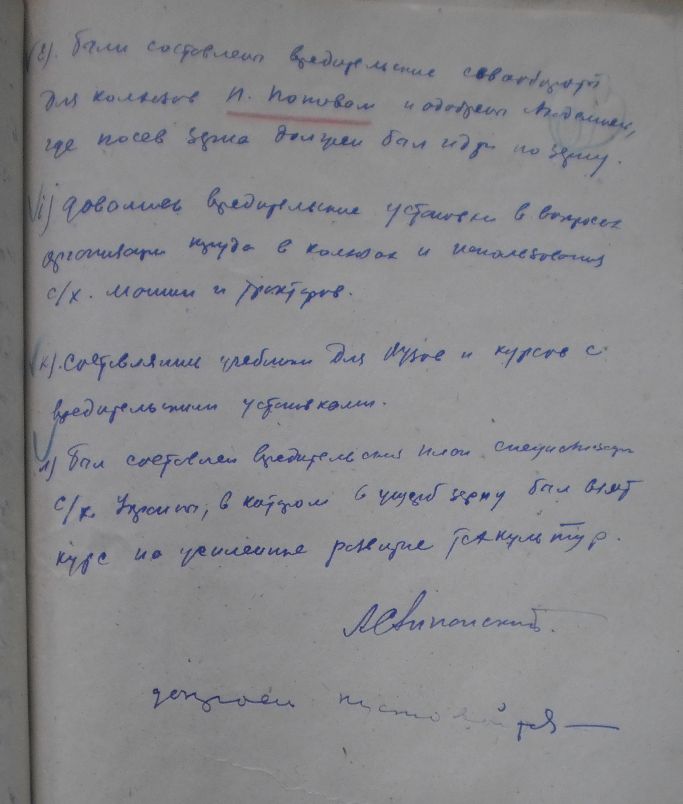 е). были составлены вредительские севообороты
для колхозов П. Поповам и одобрены Академией,
где посев зерна должен был идти по зерну.
i) давались вредительские установки в вопросах
организации труда в колхозах и использования
с/х. машин и тракторов.
к). составлялись учебники для Вузов и курсов с
вредительскими установками.
л) был составлен вредительский план специализации
с/х. Украины, в котором в ущерб зерну был взят
курс на усиленное развитие техкультур.
допросил